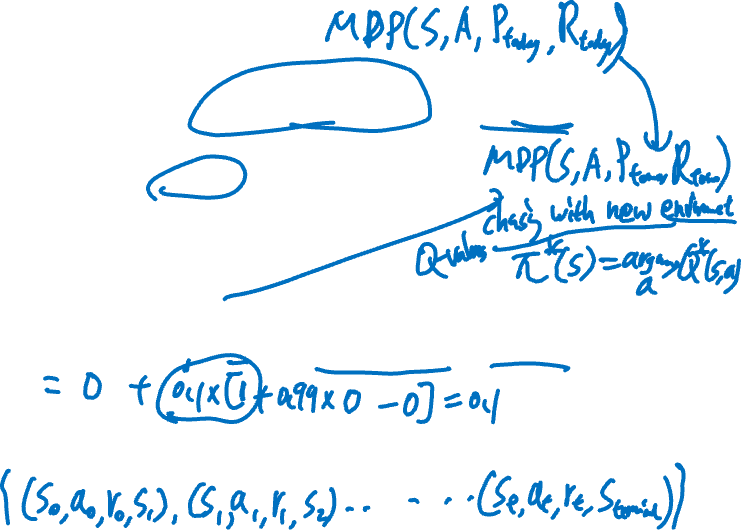 MDP(S, A, P_today, R_today)
MDP(S, A, P_tomo, R_tomo)
with new
Q-values π*(s) = argmax_a Q*(s,a)
= 0 + 0.1 × [1 + 0.99 × 0 - 0] = 0.1
{(s_0, a_0, r_0, s_1), (s_1, a_1, r_1, s_2) .. - .. (s_t, a_t, r_t, s_terminal)}